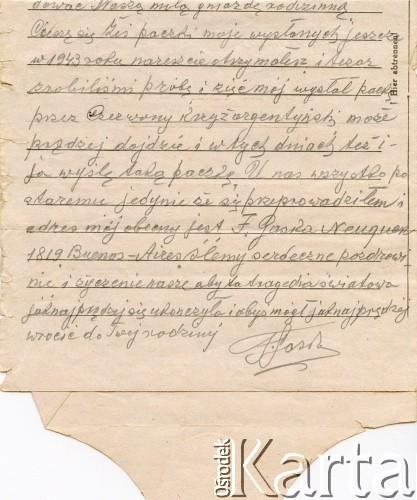 dować Naszą miłą gniazdę rodzinną
Cieszę się żeś paczki moje wysłanych jeszcze
w 1943 roku nareszcie otrzymałeś i teraz
zrobiliśmi próbę i zięć mój wysłał paczkę
przez Czerwony Krzyż argentyński może
prędzej dojdzie i w tych dniach też i-
ja wyślę taką paczkę. U nas wszystko po
staremu jedynie że się przeprowadziłem i
adres mój obecny jest F. Gaska Neuquen
1819 Buenos-Aires ślemy serdeczne pozdrow-
nie i życzenie nasze aby ta tragedia światowa
jaknajprędzej się ukończyła i abyś mógł jaknajprędzej
wrócić do Twej rodziny
Hier abtrennen!
Ośrodek Karta